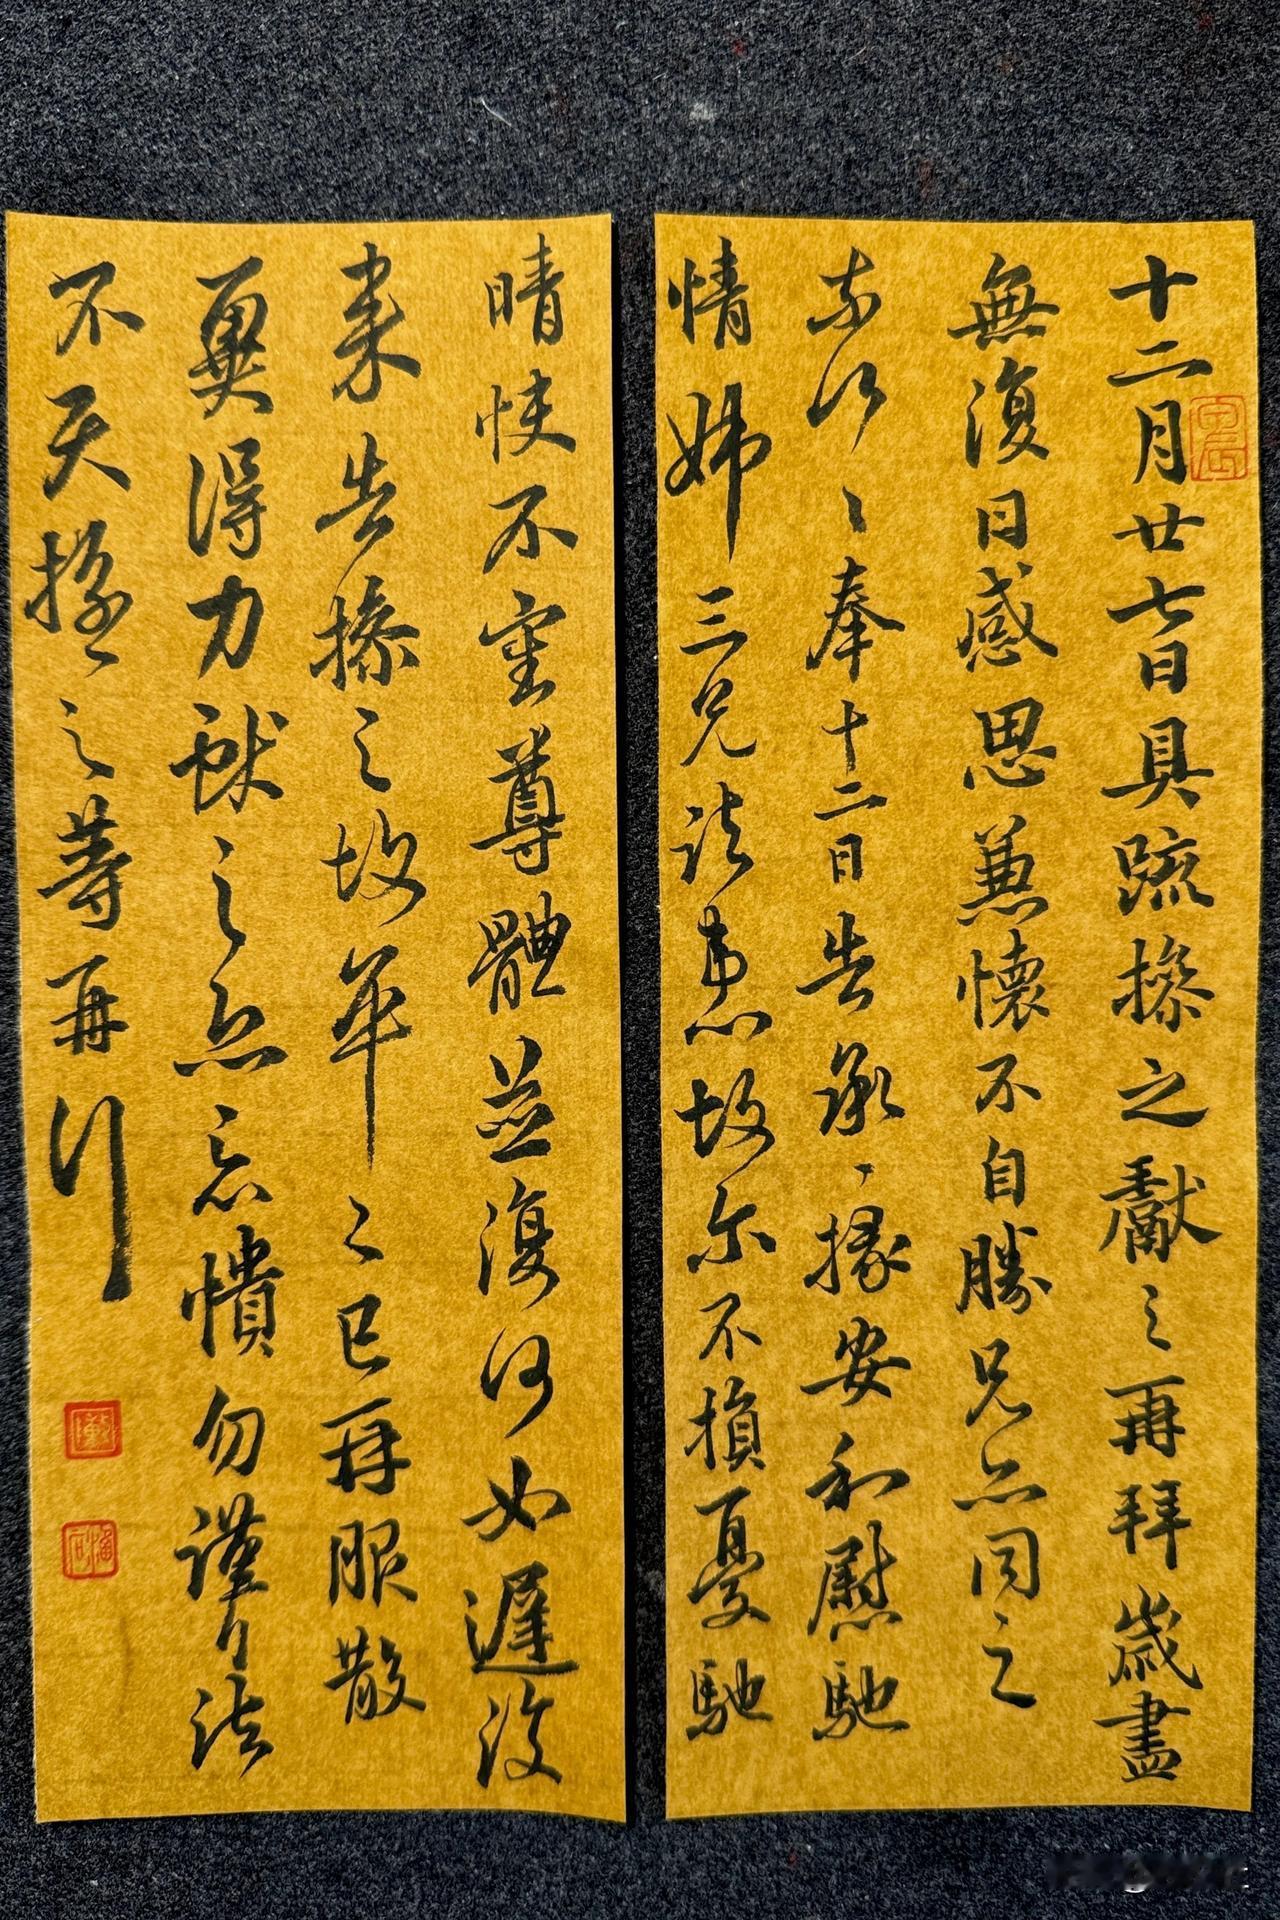 十二月廿七日具疏操之獻之再拜歲盡
無復日感思兼懷不自勝兄亦同之
奈何〻奉十二日告承〻掾安和慰馳
情姊三兄諸患故尔不損憂馳
晴快不審尊體並復何如遲復
来告操之故平〻已再服散
冀得力獻之忘憒勿謹
不操之等再拜